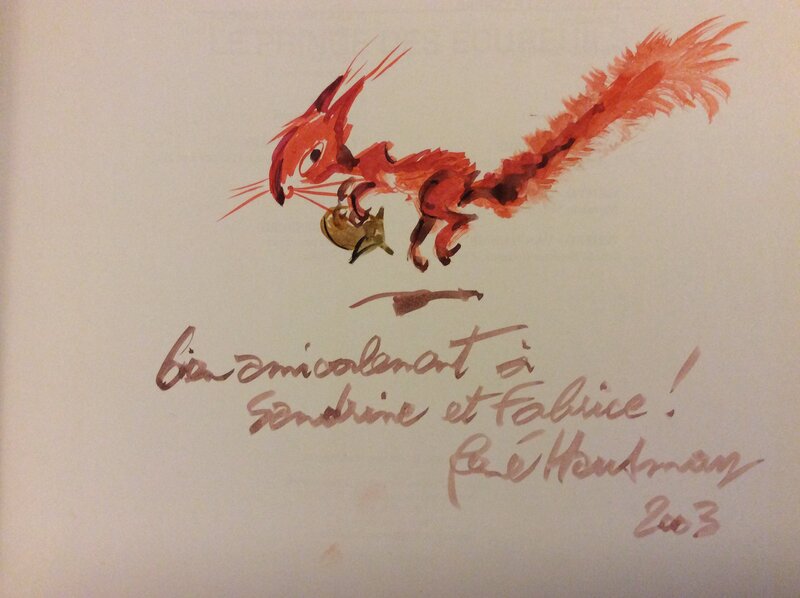 bien amicalement à
Sandrine et Fabrice !
René Hausman
2003